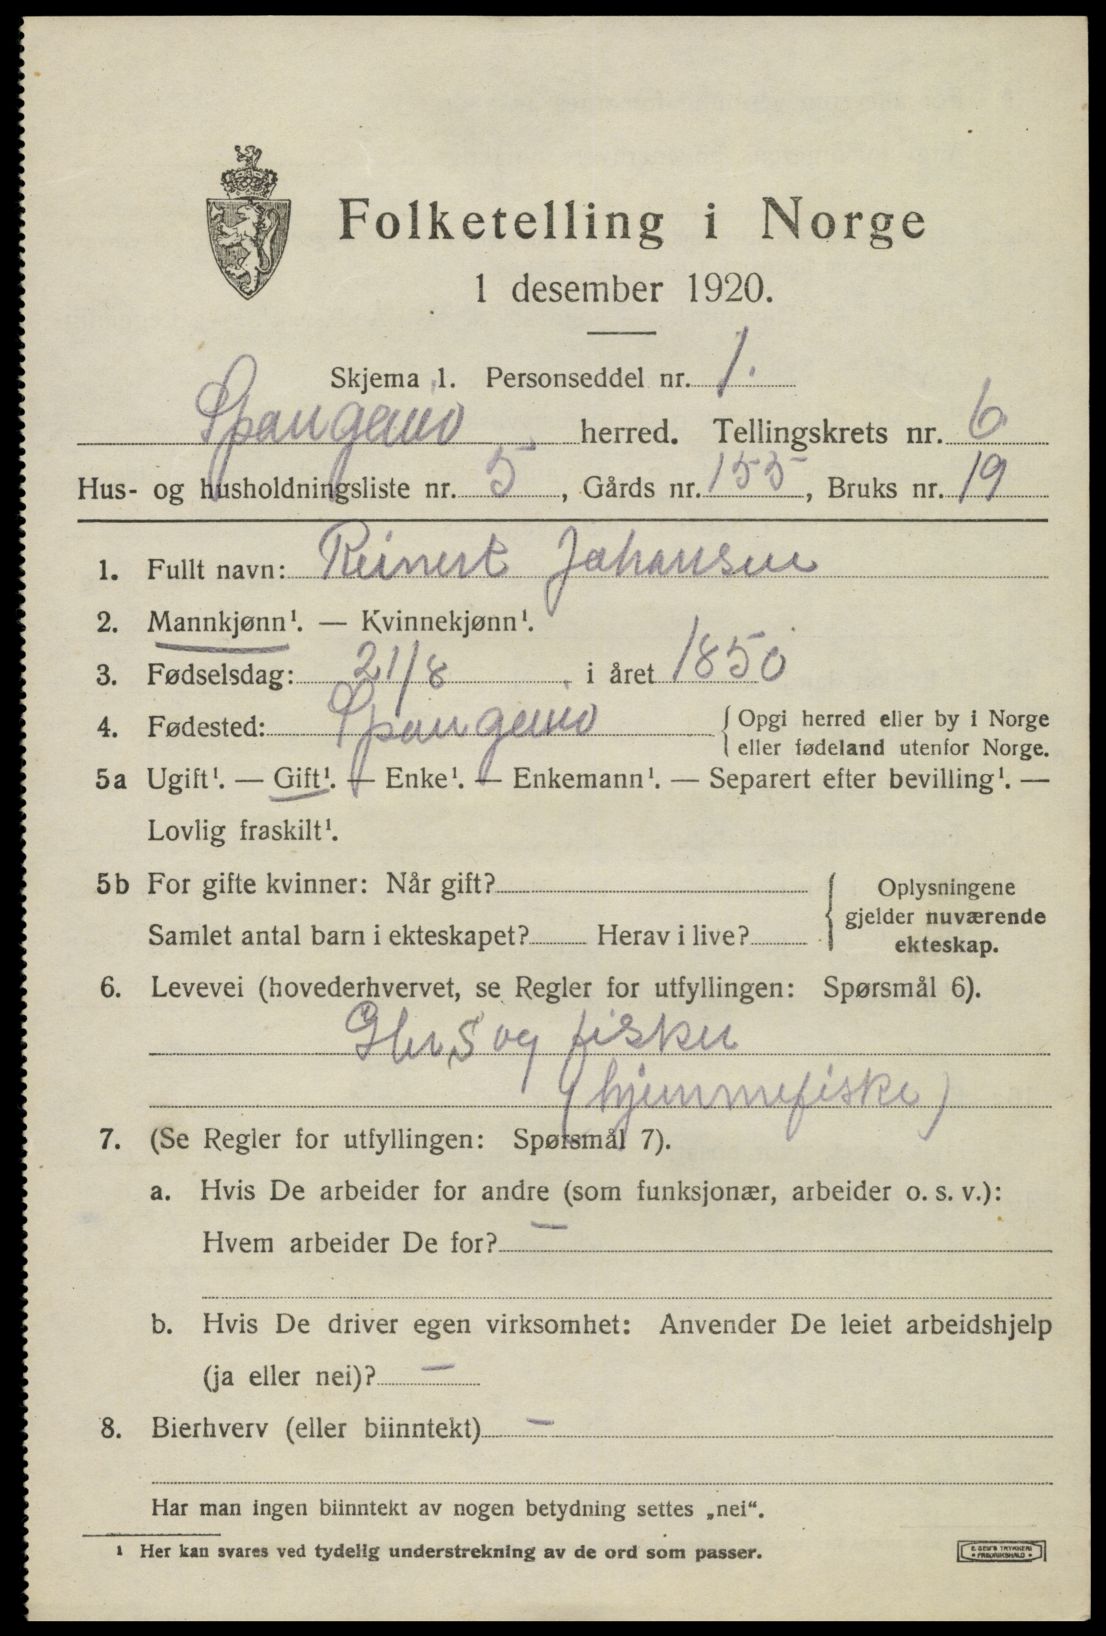 Folketelling i Norge
1 desember 1920.
Skjema 1. Personseddel nr. 1.
Spangereid herred. Tellingskrets nr. 6
Hus- og husholdningsliste nr. 5, Gårds nr. 155, Bruks nr. 19
1. Fullt navn: Reinert Johansen
2. Mannkjønn¹. — Kvinnekjønn¹.
3. Fødselsdag: 21/8 i året 1850
4. Fødested: Spangereid {Opgi herred eller by i Norge
eller fødeland utenfor Norge.
5a Ugift¹. — Gift¹. — Enke¹. — Enkemann¹. — Separert efter bevilling¹. —
Lovlig fraskilt¹.
5b For gifte kvinner: Når gift?
Samlet antal barn i ekteskapet? Herav i live?
{Oplysningene
gjelder nuværende
ekteskap.
6. Levevei (hovederhvervet, se Regler for utfyllingen: Spørsmål 6).
Gbr S og fisker
(hjemmefiske)
7. (Se Regler for utfyllingen: Spørsmål 7).
a. Hvis De arbeider for andre (som funksjonær, arbeider o. s. v.):
Hvem arbeider De for? —
b. Hvis De driver egen virksomhet: Anvender De leiet arbeidshjelp
(ja eller nei)? —
8. Bierhverv (eller biinntekt) —
Har man ingen biinntekt av nogen betydning settes „nei“.
¹ Her kan svares ved tydelig understrekning av de ord som passer.
E. SEM'S TRYKKERI
• FREDRIKSHALD •